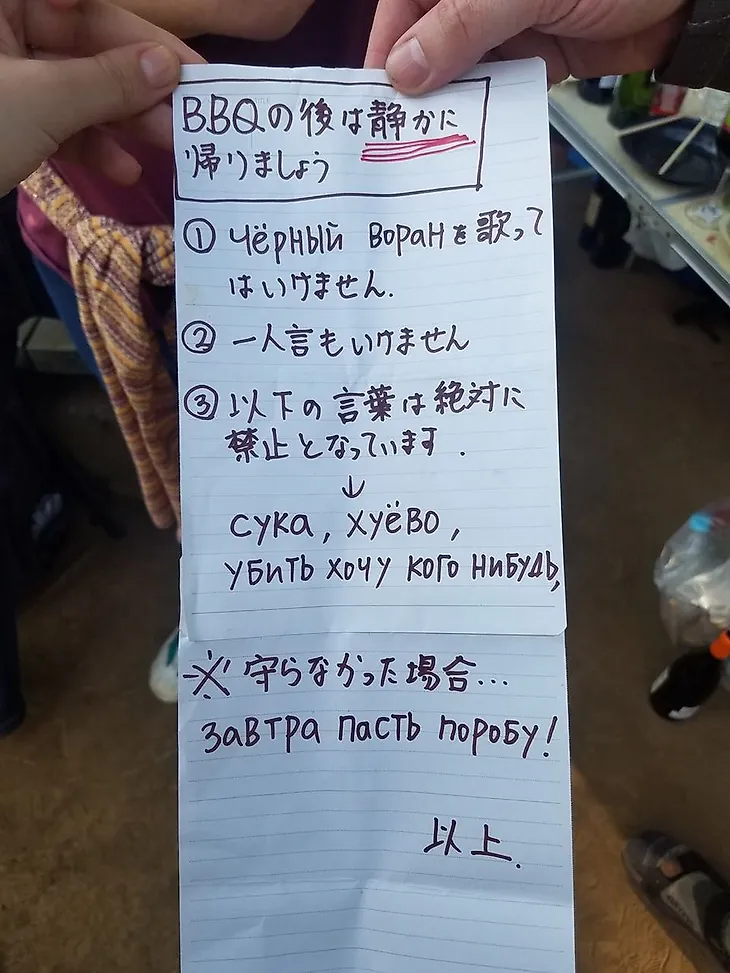 BBQの後は静かに
帰りましょう
① Чёрный Воранを歌って
はいけません.
② 一人言もいけません
③ 以下の言葉は絶対に
禁止となっています.
↓
сука, хуёво,
убить хочу кого нибудь,
※ 守らなかった場合...
завтра пасть поробу!
以上.